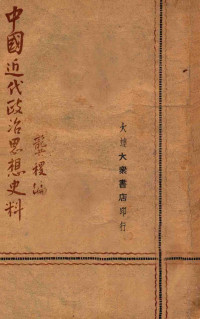 中國近代政治思想史料
編
大連大衆書店印行